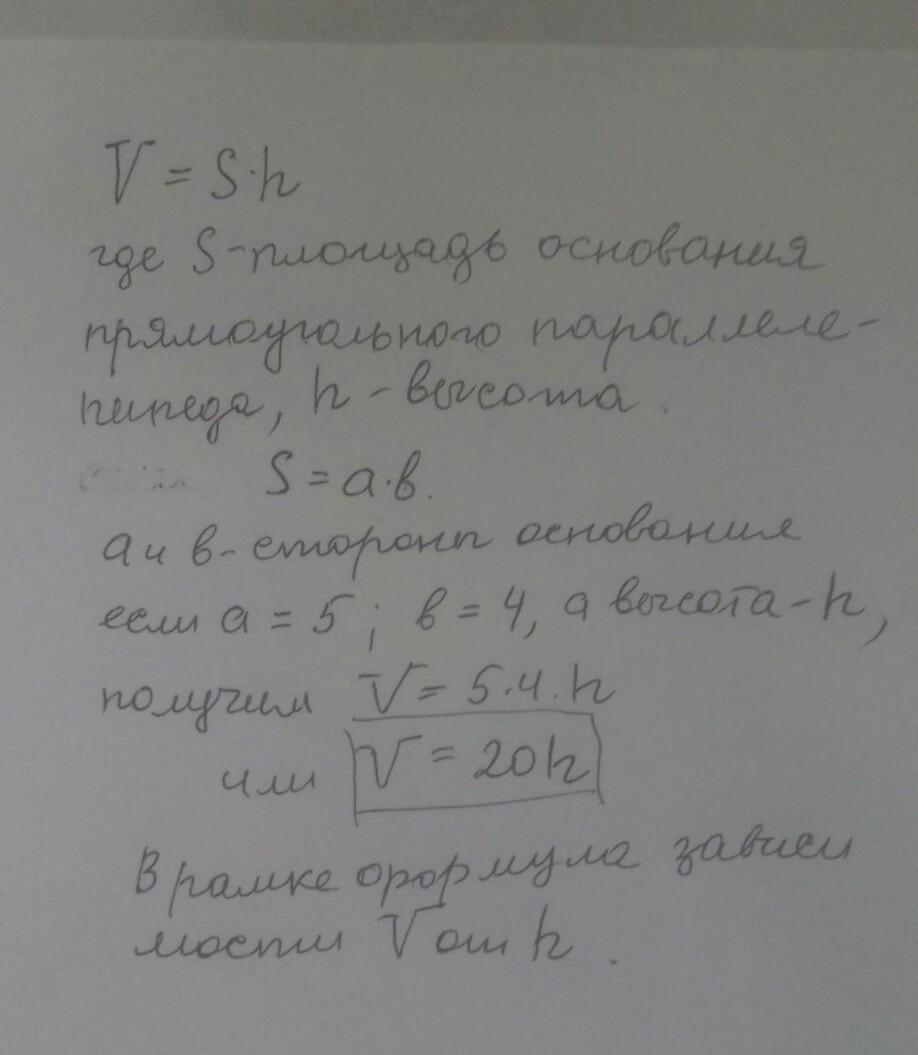 V = S·h
где S-площадь основания
прямоугольного параллеле-
пипеда, h - высота.
S = a·b.
a и b - стороны основания
если a = 5; b = 4, а высота - h,
получим V = 5·4·h
или V = 20h
В рамке формула зависи
мости V от h.